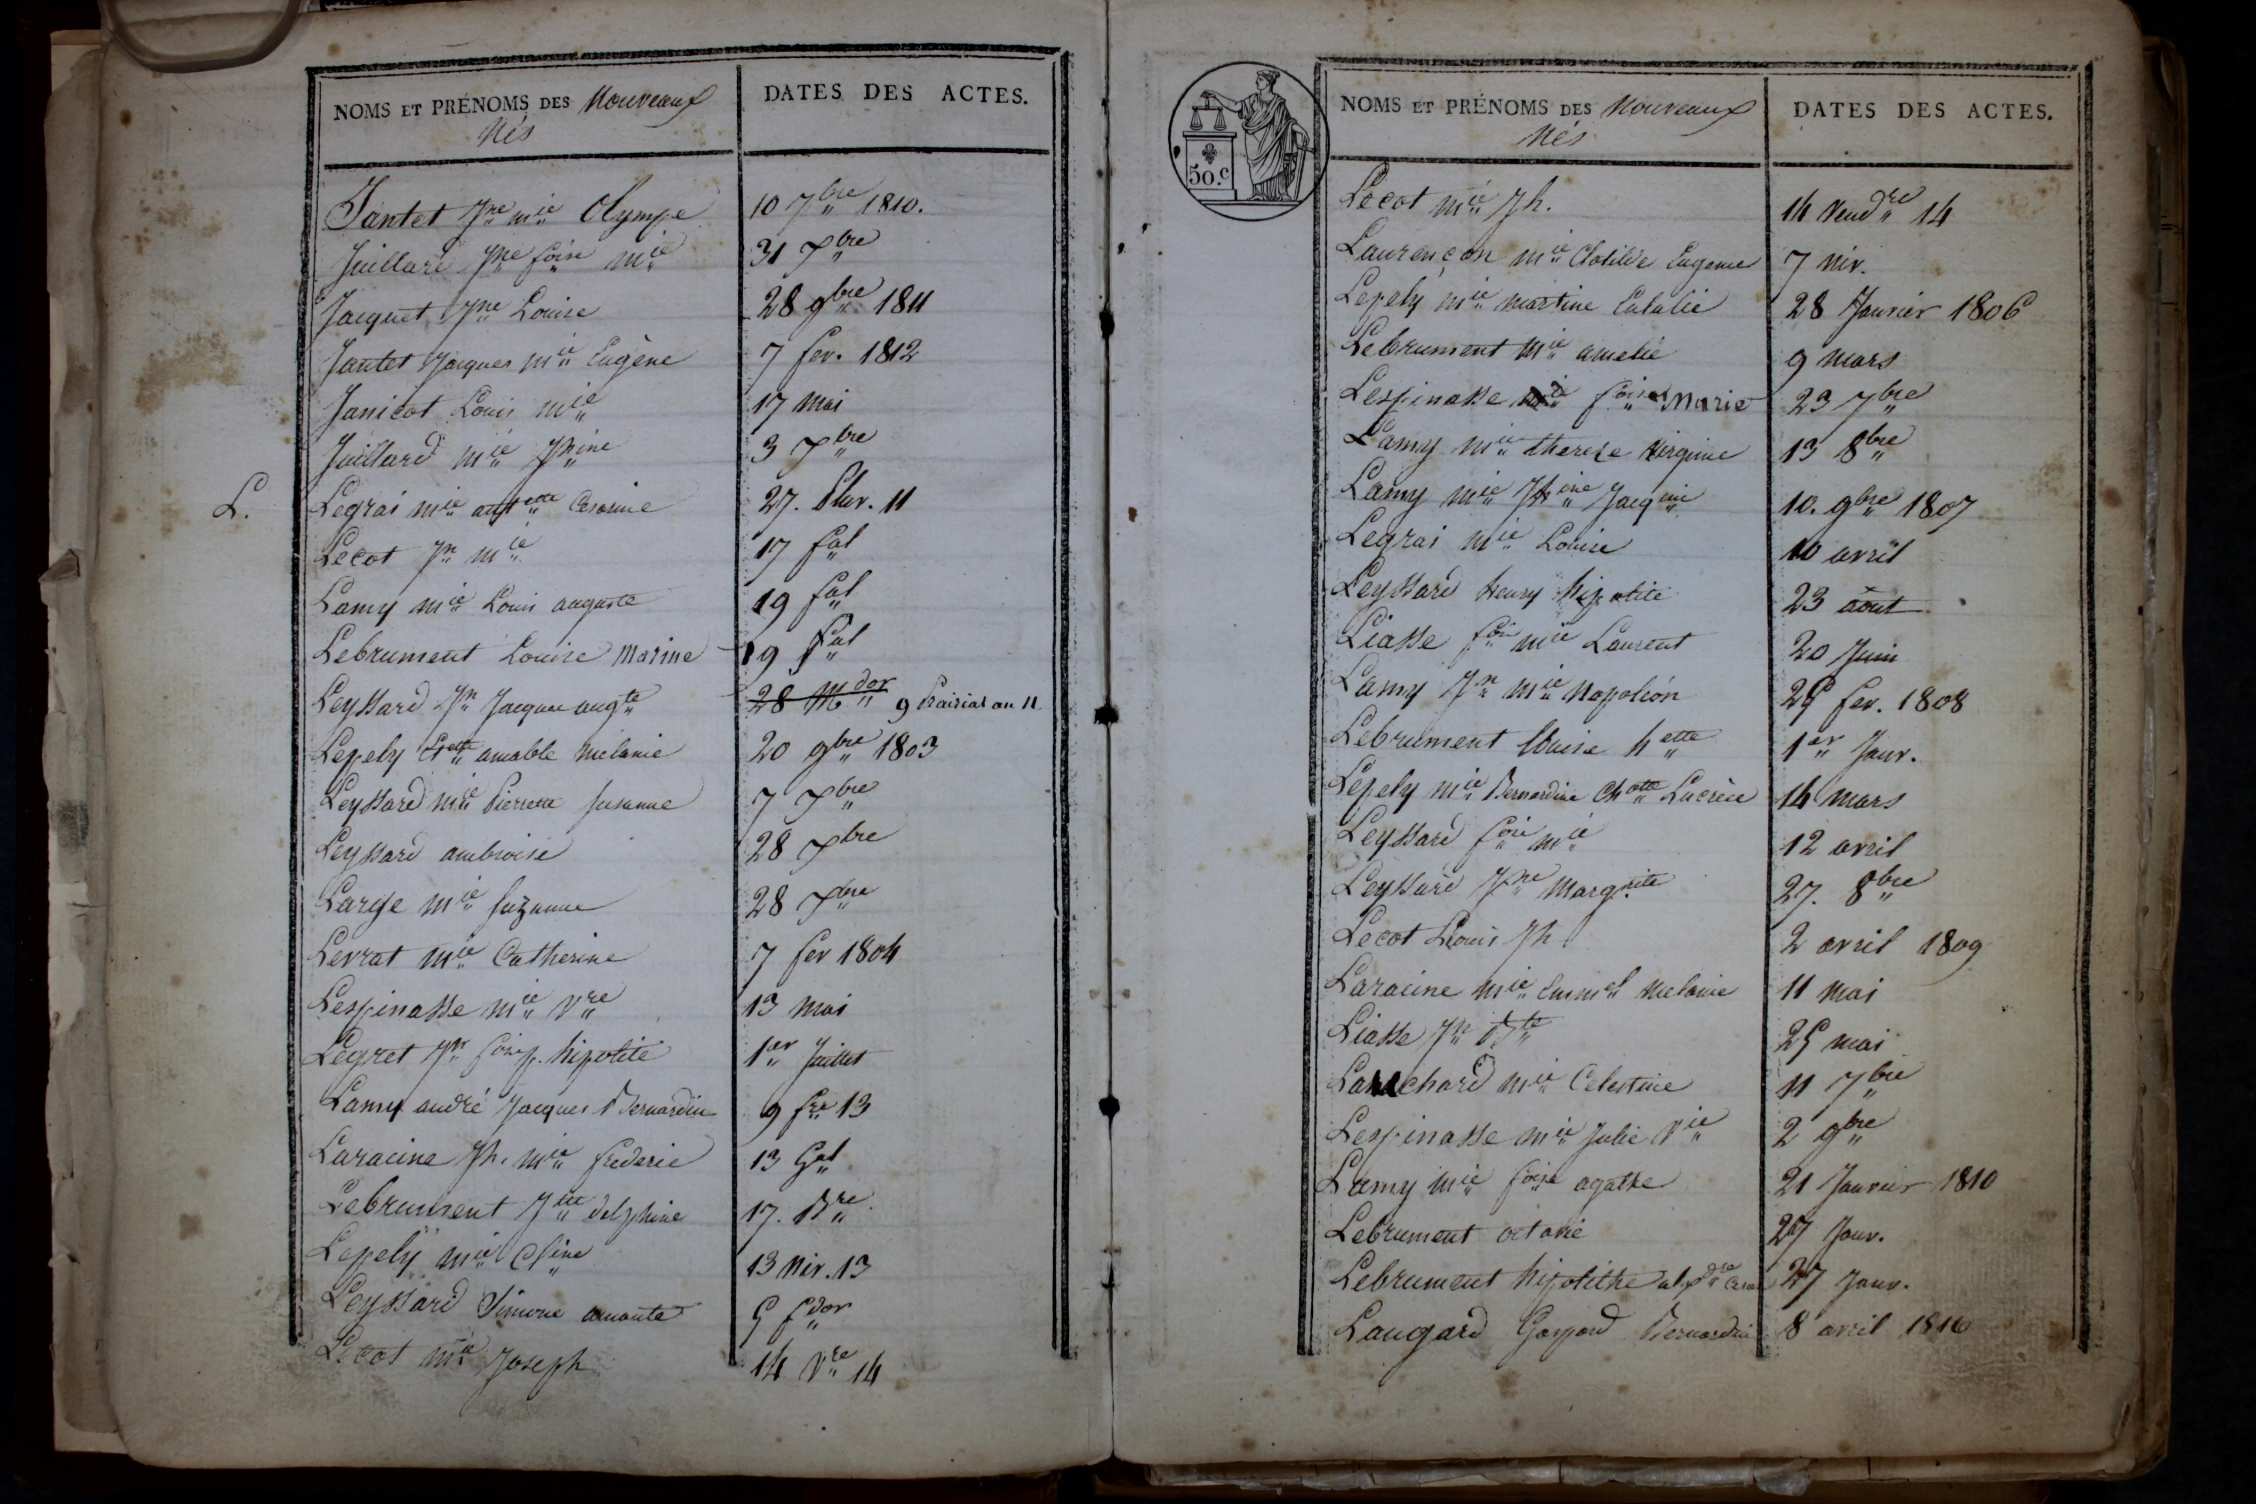 NOMS ET PRÉNOMS DES Nouveaux DATES DES ACTES.
Nés
Jantet Jne mie Olympe 10 7bre 1810.
Juillard Jne foise mie 31 Xbre
Jacquet Jne Louise 28 9bre 1811
Jantet Jacques mie Eugène 7 fev. 1812
Janicot Louis mie 17 mai
Juillard mie Jphine 3 Xbre
L. Legrai mie antette Cesarine 27. Pluv. 11
Lecot Jn mie 17 fal
Lamy mie Louis auguste 19 fal
Lebrument Louise Marine 19 fal
Leyssard Jn Jacques augte 28 Mdor 9 Prairial an 11
Lepely amable Melanie 20 9bre 1803
Leyssard mie Pierrette Susanne 7 Xbre
Leyssard ambroise 28 Xbre
Large mie Suzanne 28 Xbre
Levrat mie Catherine 7 fev 1804
Lespinasse mie Vre 13 mai
Legret Jn hipolite 1er Juillet
Lamy andré Jacques Bernardin 9 fre 13
Laracine Jh. mie frederic 13 Gal
Lebrument delphine 17. Bre
Lepely mie 13 Niv. 13
Leyssard Simone amante 5 fdor
Lecot mie Joseph 14 Vre 14
50.c
NOMS ET PRÉNOMS DES Nouveaux DATES DES ACTES.
Nés
Lecot mie Jh. 14 Vendre 14
Laurençon mie Clotilde Eugenie 7 niv.
Lepely mie martine Eulalie 28 Janvier 1806
Lebrument mie amelie 9 mars
Lespinasse foise Marie 23 7bre
Lamy mie therese Virginie 13 8bre
Lamy mie Jhine 10. 9bre 1807
Legrai mie Louise 10 avril
Leyssard henry hipolite 23 aout
Liasse fois mie Laurent 20 Juin
Lamy Jn mie Napoléon 25 fev. 1808
Lebrument Louise hette 1er Janv.
Lepely mie Bernardine Chotte Lucrèce 14 mars
Leyssard fois mie 12 avril
Leyssard Jne Margrite 27. 8bre
Lecot Louis Jh 2 avril 1809
Laracine mie Emmel Melanie 11 mai
Liasse Jn Bte 25 mai
mie Celestine 11 7bre
Lespinasse mie Julie Vie 2 9bre
Lamy mie foise agathe 21 Janvier 1810
Lebrument octavie 27 Janv.
Lebrument hipolithe alexdre 27 Janv.
Laugard Gaspard Bernardin 8 avril 1810